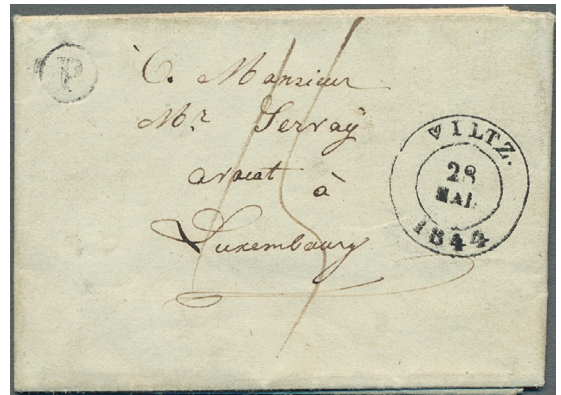 P
A Monsieur
Mr. Servaÿ
avocat à
Luxembourg
15
WILTZ.
28
MAI.
1844